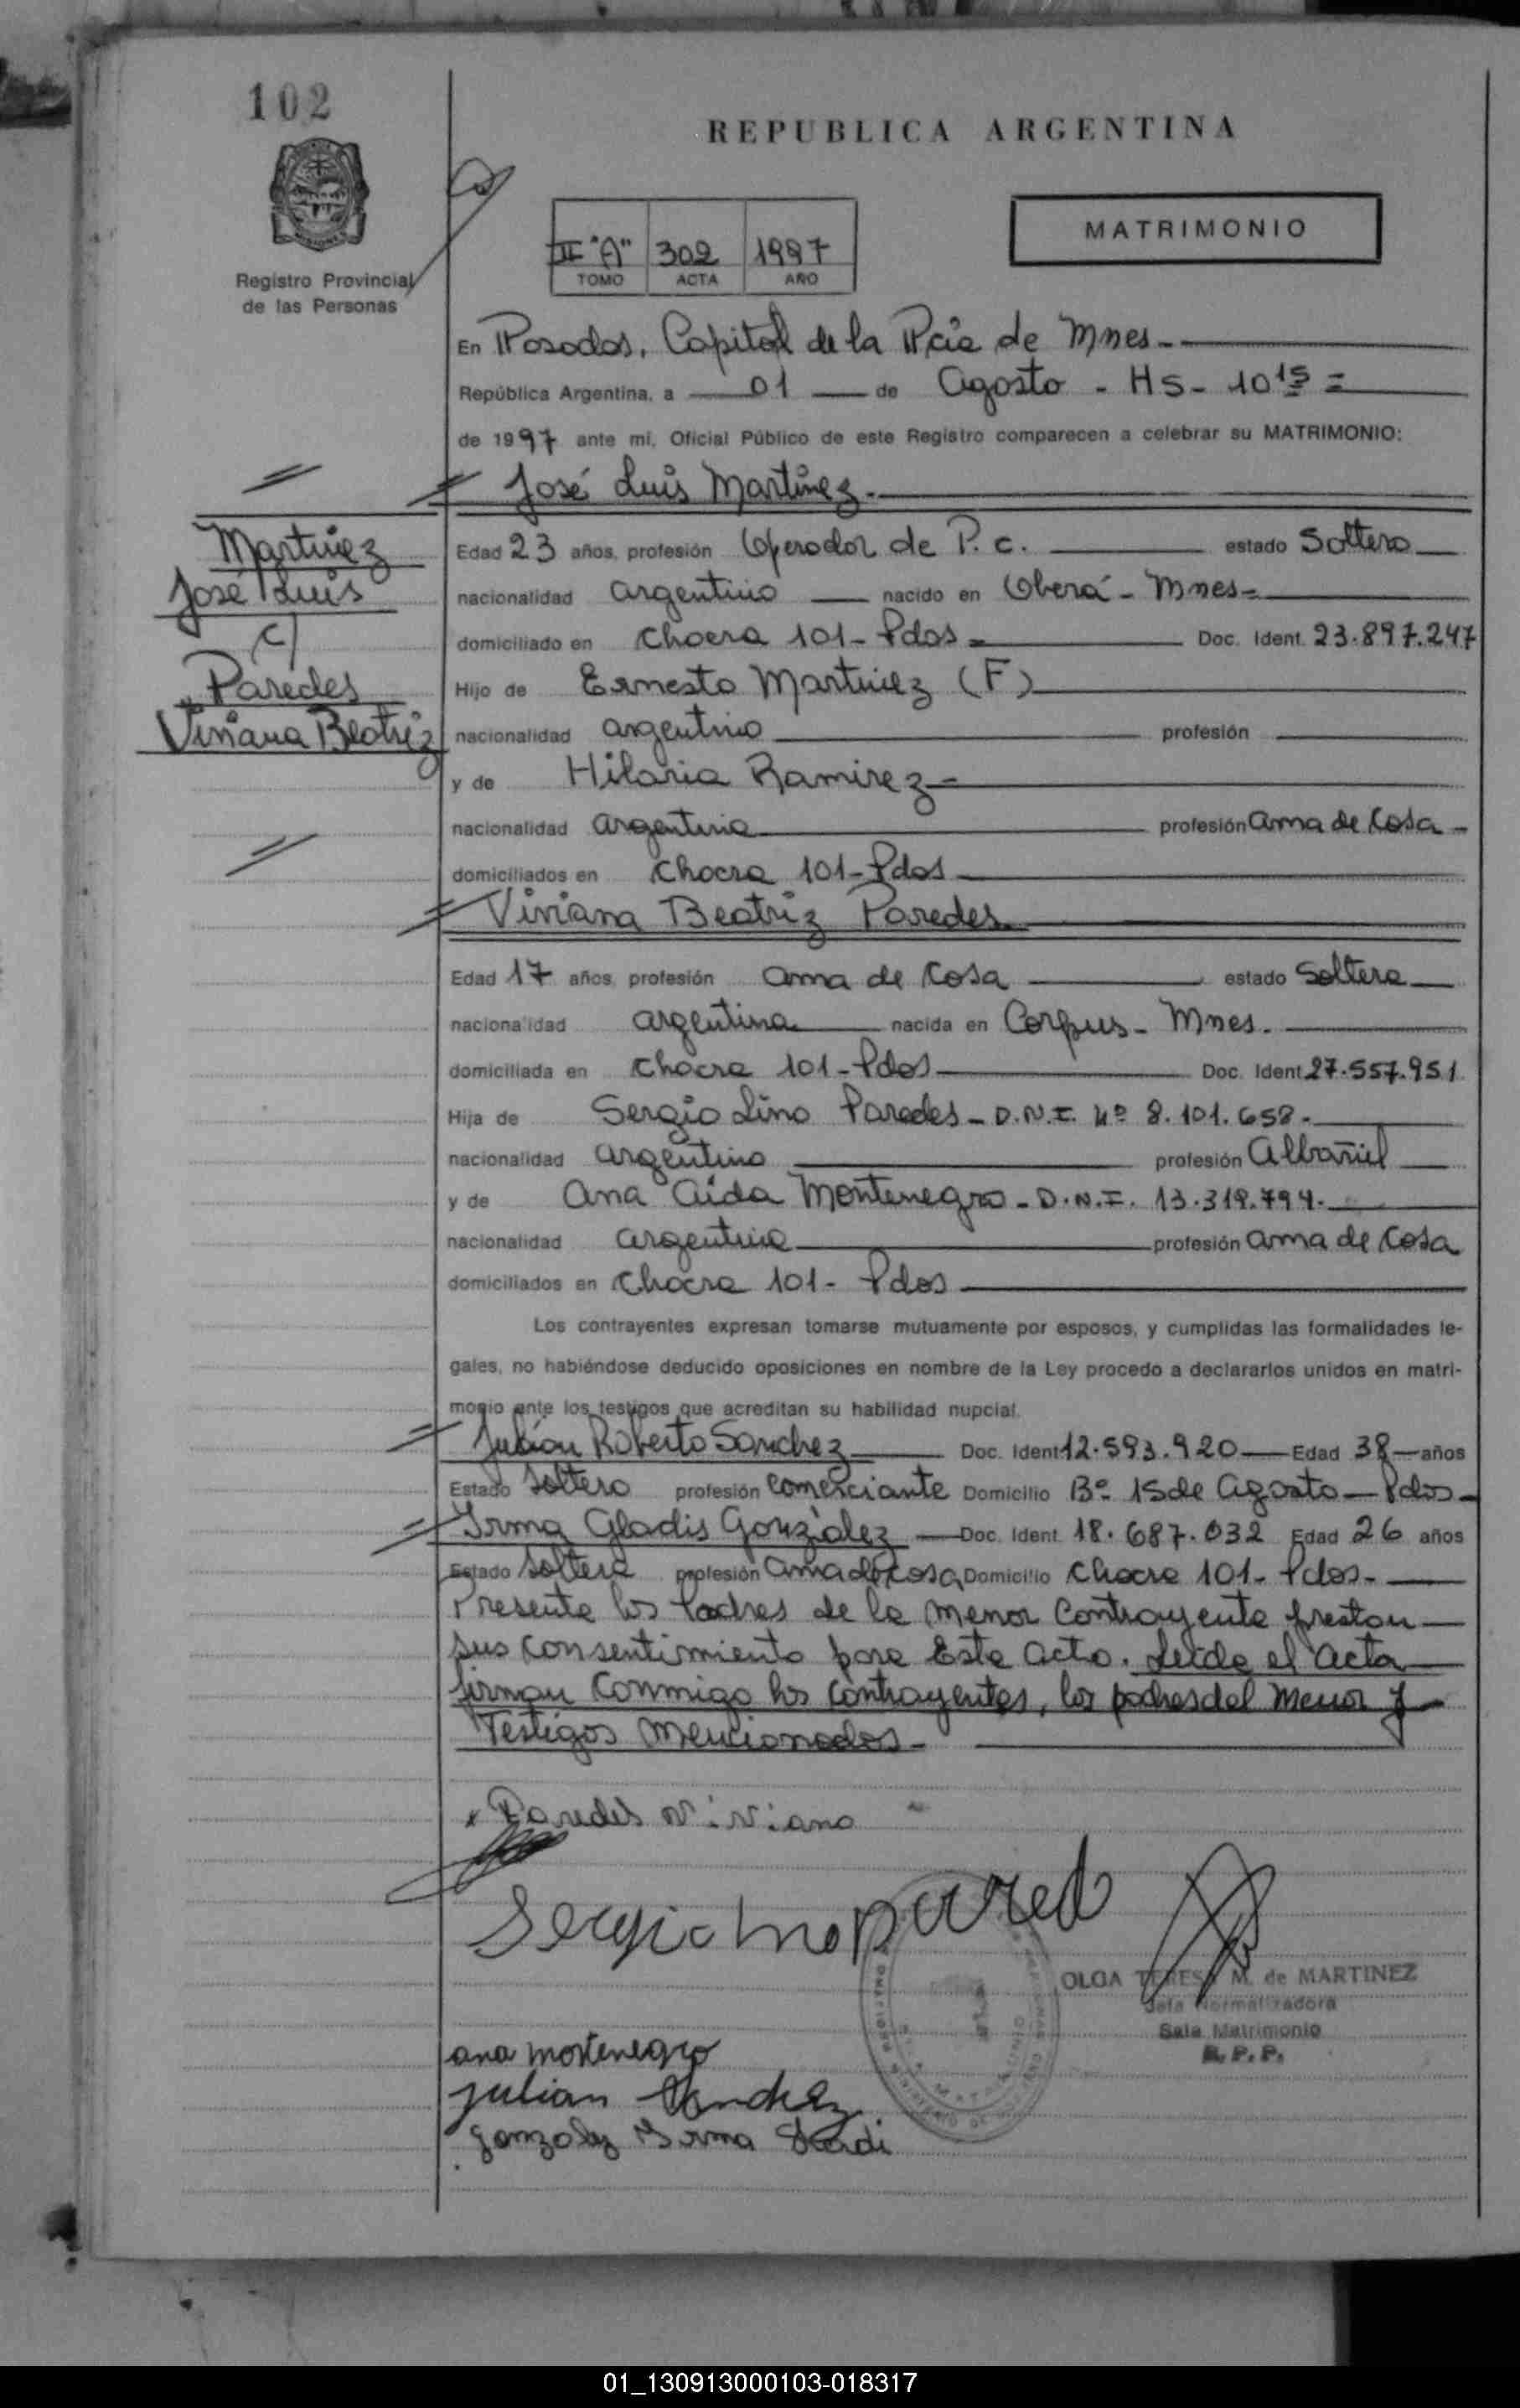 102
REPUBLICA ARGENTINA
MISIONES
Registro Provincial
de las Personas
II "A" 302 1997
TOMO ACTA AÑO
MATRIMONIO
En Posadas, Capital de la Pcia de Mnes.-
República Argentina, a 01 de Agosto - HS - 10 15 =
de 1997 ante mi, Oficial Público de este Registro comparecen a celebrar su MATRIMONIO:
José Luis Martinez.
Martinez
José Luis
c/
Paredes
Viviana Beatriz
Edad 23 años, profesión Operador de P.c. estado Soltero
nacionalidad argentino nacido en Oberá - Mnes-
domiciliado en Chacra 101 - Pdas - Doc. Ident. 23.897.247
Hijo de Ernesto Martinez (F)
nacionalidad argentino profesión
y de Hilaria Ramirez -
nacionalidad argentina profesión ama de Casa -
domiciliados en Chacra 101 - Pdas
Viviana Beatriz Paredes
Edad 17 años, profesión ama de Casa estado Soltera
nacionalidad argentina nacida en Corpus - Mnes.
domiciliada en Chacra 101 - Pdas Doc. Ident. 27.557.951
Hija de Sergio Lino Paredes - D.N.I. Nº 8.101.658 -
nacionalidad argentino profesión Albañil
y de Ana Aída Montenegro - D.N.I. 13.319.794.
nacionalidad argentina profesión ama de Casa
domiciliados en Chacra 101 - Pdas
Los contrayentes expresan tomarse mutuamente por esposos, y cumplidas las formalidades le-
gales, no habiéndose deducido oposiciones en nombre de la Ley procedo a declararlos unidos en matri-
monio ante los testigos que acreditan su habilidad nupcial.
Julián Roberto Sanchez Doc. Ident. 12.593.920 Edad 38 años
Estado Soltero profesión Comerciante Domicilio Bº 15 de Agosto - Pdas -
Irma Gladis González Doc. Ident. 18.687.032 Edad 26 años
Estado Soltera profesión Ama de Casa Domicilio Chacra 101 - Pdas -
Presente los Padres de la menor Contrayente prestan
sus Consentimiento para Este acto. Leída el acta
firman Conmigo los contrayentes, los padres del Menor y
Testigos Mencionados -
x Paredes Viviana
Sergio Lino Pared
OLGA TERESA M. de MARTINEZ
Jefa Normalizadora
Sala Matrimonio
R. P. P.
ana montenegro
Julian Sanchez
Gonzalez Irma
01_130913000103-018317